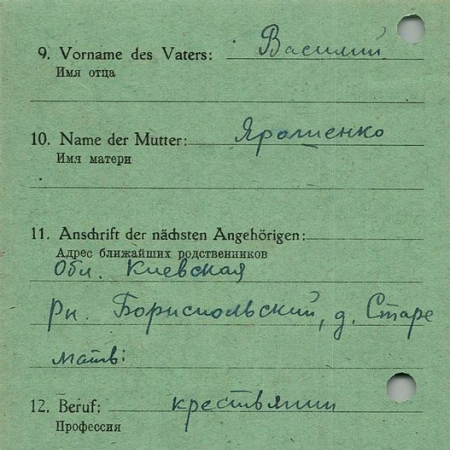 9. Vorname des Vaters: Василий
Имя отца
10. Name der Mutter: Ярошенко
Имя матери
11. Anschrift der nächsten Angehörigen:
Адрес ближайших родственников
Обл. Киевская
Рн. Бориспольский, д. Старе
матв:
12. Beruf: крествянин
Профессия